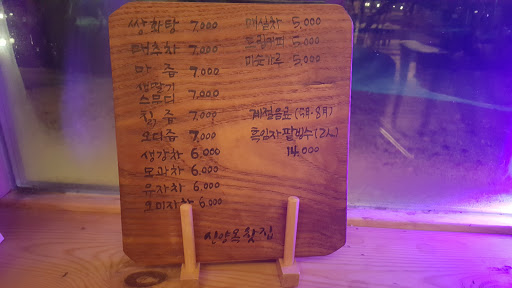 쌍화탕 7,000
대추차 7,000
마 즙 7,000
생딸기
스무디 7,000
칡 즙 7,000
오디즙 7,000
생강차 6,000
모과차 6,000
유자차 6,000
오미자차 6,000
매실차 5,000
드립커피 5,000
미숫가루 5,000
계절음료 (5月-8月)
흑임자팥빙수 (2人)
14,000